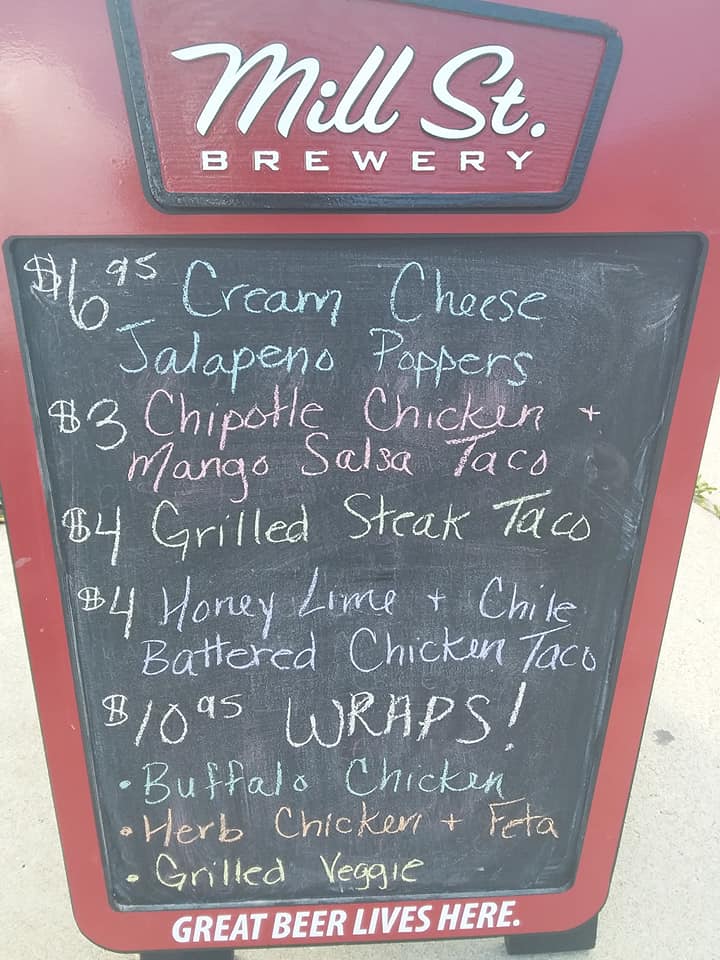 Mill St.
BREWERY
$6.95 Cream Cheese
Jalapeno Poppers
$3 Chipotle Chicken +
Mango Salsa Taco
$4 Grilled Steak Taco
$4 Honey Lime + Chile
Battered Chicken Taco
$10.95 WRAPS!
• Buffalo Chicken
• Herb Chicken + Feta
• Grilled Veggie
GREAT BEER LIVES HERE.